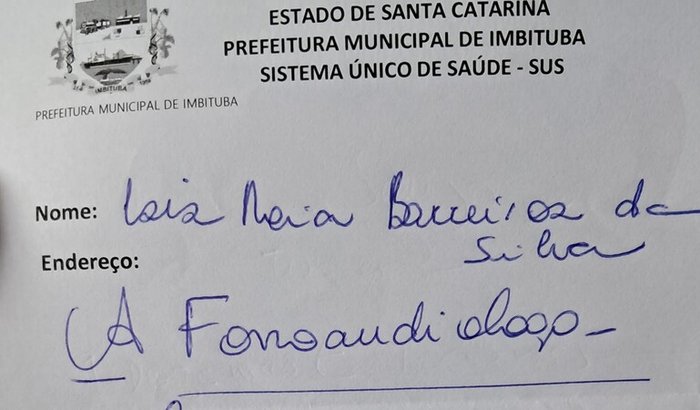 ESTADO DE SANTA CATARINA
PREFEITURA MUNICIPAL DE IMBITUBA
SISTEMA ÚNICO DE SAÚDE - SUS
IMBITUBA
PREFEITURA MUNICIPAL DE IMBITUBA
Nome: Maia Barreiros da
Silva
Endereço:
A Fonoaudiologo